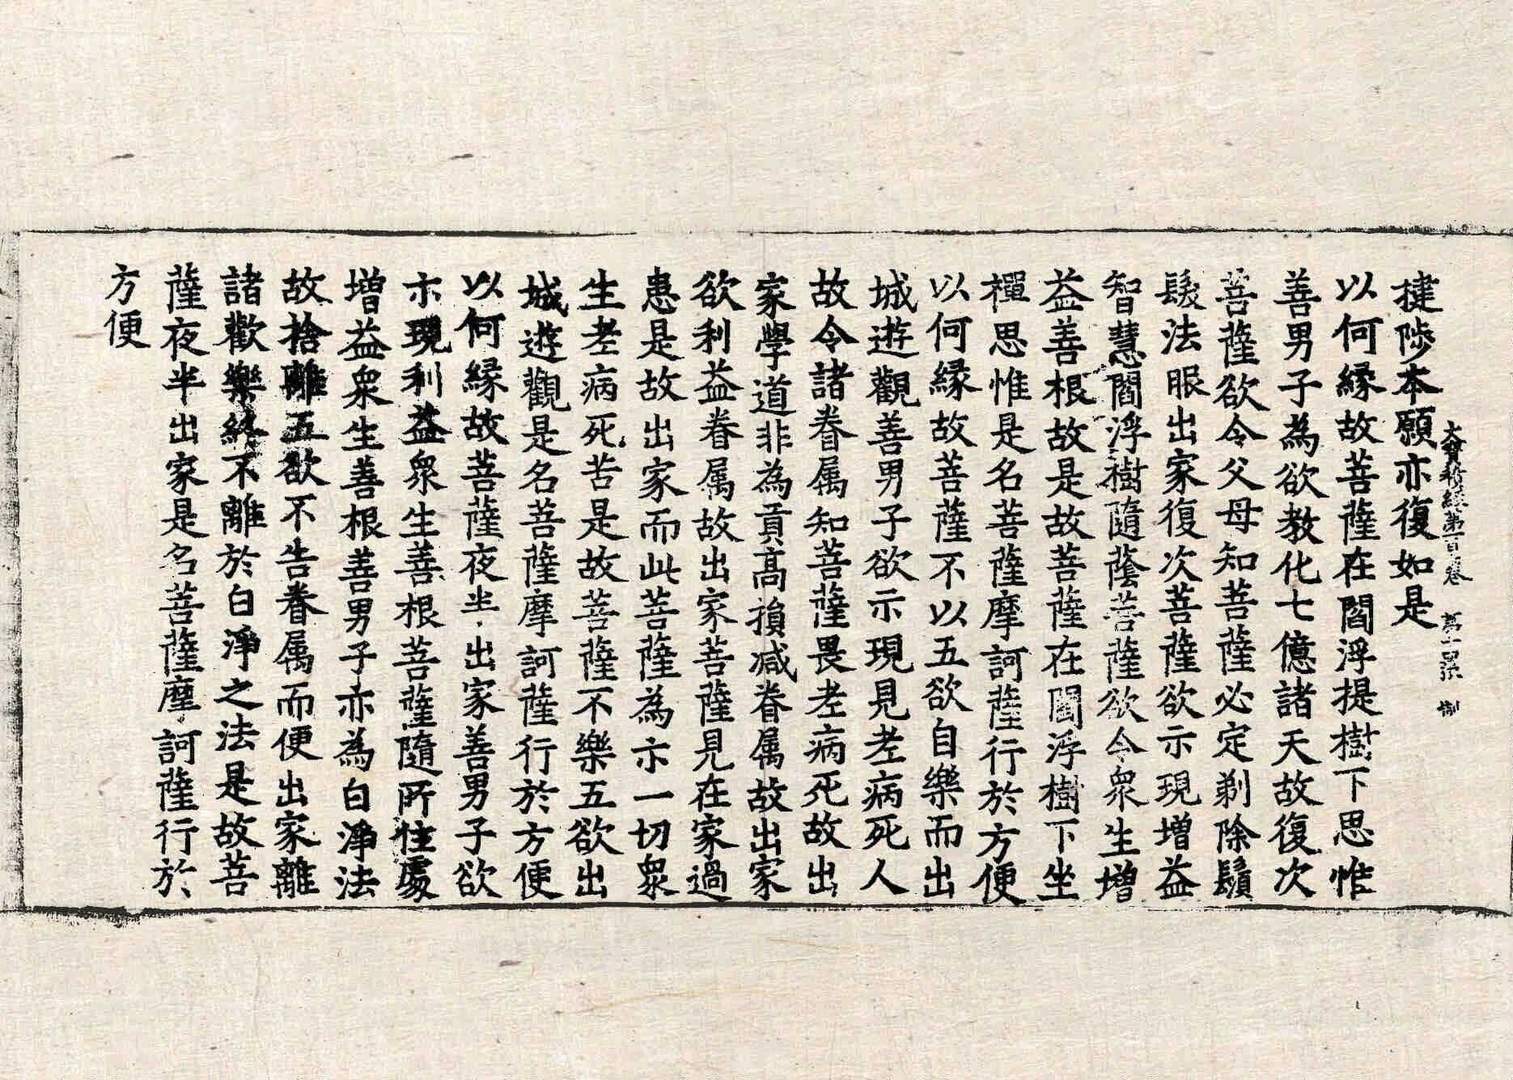 大寶積經第一百卷 第十四張 制
揵陟本願亦復如是
以何緣故菩薩在閻浮提樹下思惟
善男子為欲教化七億諸天故復次
菩薩欲令父母知菩薩必定剃除鬚
髮法眼出家復次菩薩欲示現增益
智慧閻浮樹隨蔭菩薩欲令眾生增
益善根故是故菩薩在閻浮樹下坐
禪思惟是名菩薩摩訶薩行於方便
以何緣故菩薩不以五欲自樂而出
城遊觀善男子欲示現見老病死人
故令諸眷属知菩薩畏老病死故出
家學道非為貢高損減眷属故出家
欲利益眷属故出家菩薩見在家過
患是故出家而此菩薩為示一切眾
生老病死苦是故菩薩不樂五欲出
城遊觀是名菩薩摩訶薩行於方便
以何緣故菩薩夜半出家善男子欲
示現利益眾生善根菩薩隨所住處
增益眾生善根善男子亦為白淨法
故捨離五欲不告眷属而便出家離
諸歡樂終不離於白淨之法是故菩
薩夜半出家是名菩薩摩訶薩行於
方便